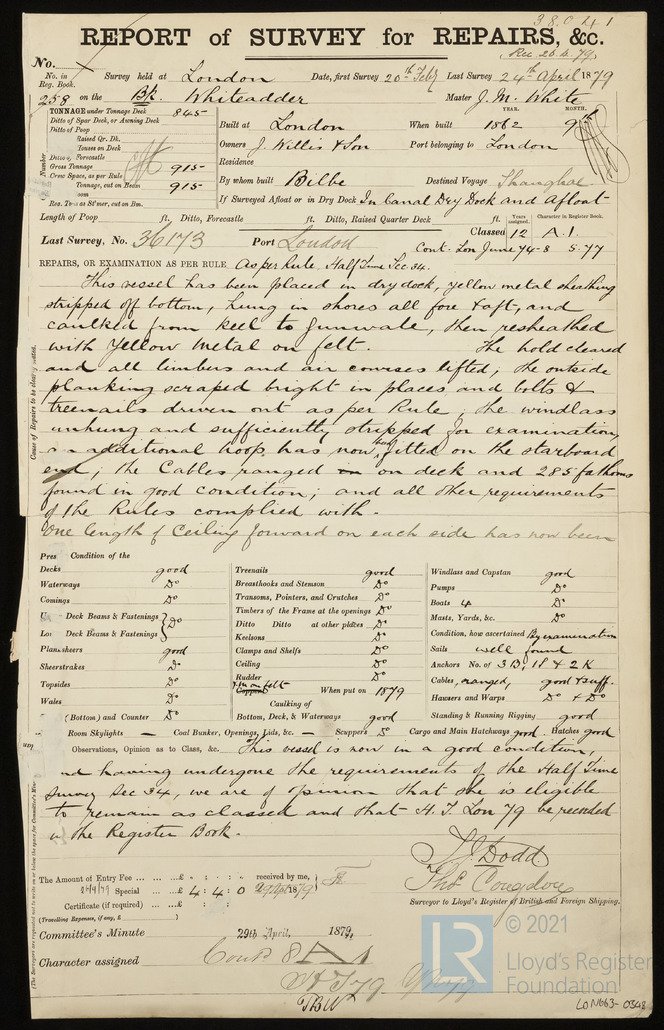 38041
REPORT of SURVEY for REPAIRS, &c.
Rec. 26.4.79
No.
No. in Reg. Book. Survey held at London Date, first Survey 20th Feby Last Survey 24th April 1879
258 on the Bk. Whiteadder Master J. M. White
TONNAGE under Tonnage Deck 845
Ditto of Spar Deck, or Awning Deck
Ditto of Poop
Raised Qr. Dk.
Houses on Deck
Ditto of Forecastle
Gross Tonnage 915
Crew Space, as per Rule
Tonnage, cut on Beam 915
Reg. Tons as St'mer, cut on Bm.
YEAR. MONTH.
Built at London When built 1862 9
Owners J. Willis & Son Port belonging to London
Residence
By whom built Bilbe Destined Voyage Shanghae
If Surveyed Afloat or in Dry Dock In Canal Dry Dock and Afloat
Length of Poop ft. Ditto, Forecastle ft. Ditto, Raised Quarter Deck ft.
Years assigned. Character in Register Book.
Last Survey, No. 36173 Port London Classed 12 A.1.
Cont. Lon June 74-8 5.77
REPAIRS, OR EXAMINATION AS PER RULE As per Rule Half Time Sec 34.
This vessel has been placed in dry dock, yellow metal sheathing
stripped off bottom, hung in shores all fore & aft, and
caulked from keel to gunwale, then resheathed
with Yellow metal on felt. The hold cleared
and all limbus and air courses lifted; the outside
planking scraped bright in places and bolts &
treenails driven out as per Rule; the windlass
unhung and sufficiently stripped for examination,
additional hoop has now been fitted on the starboard
end; the Cables ranged on deck and 285 fathoms
found in good condition; and all other requirements
of the Rules complied with.
One length of Ceiling forward on each side has now been
Pres Condition of the
Decks good
Waterways Do
Comings Do
Deck Beams & Fastenings Do
Deck Beams & Fastenings
Plansheers good
Sheerstrakes Do
Topsides Do
Wales Do
(Bottom) and Counter Do
Treenails good
Breasthooks and Stemson Do
Transoms, Pointers, and Crutches Do
Timbers of the Frame at the openings Do
Ditto Ditto at other places Do
Keelsons Do
Clamps and Shelfs Do
Ceiling Do
Rudder Do
Copper Y M on felt When put on 1879
Caulking of
Bottom, Deck, & Waterways good
Windlass and Capstan good
Pumps Do
Boats 4 Do
Masts, Yards, &c. Do
Condition, how ascertained By examination
Sails well found
Anchors No. of 3B, 1S & 2K
Cables, ranged, good & suff.
Hawsers and Warps Do & Do
Standing & Running Rigging good
Room Skylights — Coal Bunker, Openings, Lids, &c. — Scuppers Do Cargo and Main Hatchways good Hatches good
Observations, Opinion as to Class, &c. This vessel is now in a good condition,
and having undergone the requirements of the Half Time
Survey Sec 34, we are of opinion that she is eligible
to remain as classed and that H.T. Lon 79 be recorded
in the Register Book.
The Amount of Entry Fee £ : : received by me,
Special £ 4 : 4 : 0
Certificate (if required) £ : :
(Travelling Expenses, if any, £ )
J. Dodd.
Thos Congdon
Surveyor to Lloyd's Register of British and Foreign Shipping.
Committee's Minute 29th April, 1879.
Character assigned Contd 8 A 1
H T 79
TBW
© 2021
LR
Lloyd's Register
Foundation
LON663-0348